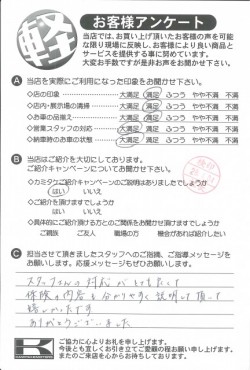 軽
お客様アンケート
当店では、お買い上げ頂いたお客様の声を可能
な限り現場に反映し、お客様により良い商品と
サービスを提供する事に努めています。
大変お手数ですが是非お声をお聞かせ下さい。
A 当店を実際にご利用になった印象をお聞かせ下さい。
◇店の印象 大満足 満足 ふつう やや不満 不満
◇店内・展示場の清掃 大満足 満足 ふつう やや不満 不満
◇お車の品揃え 大満足 満足 ふつう やや不満 不満
◇営業スタッフの対応 大満足 満足 ふつう やや不満 不満
◇納車時のお車の状態 大満足 満足 ふつう やや不満 不満
B 当店はご紹介を大切にしております。
ご紹介キャンペーンについてお聞かせ下さい。
◇カミタケご紹介キャンペーンのご説明はありましたでしょうか
はい いいえ
◇ご紹介を頂けますでしょうか
はい いいえ
◇具体的にご紹介頂ける方とのご関係をお聞かせ頂けますでしょうか
ご親族 ご友人 職場の方 機会があれば紹介したい
C 担当させて頂きましたスタッフへのご指摘、ご指導メッセージを
お願いします。応援メッセージもぜひお願いします。
スタッフさんの対応がとてもよくて
保険の内容も分かりやすく説明して頂いて
嬉しかったです
ありがとうございました
K
ご協力に心よりお礼を申し上げます。
今後とも宜しくお引き立てご愛顧の程お願い申し上げます。
またのご来店を心からお待ちしております。